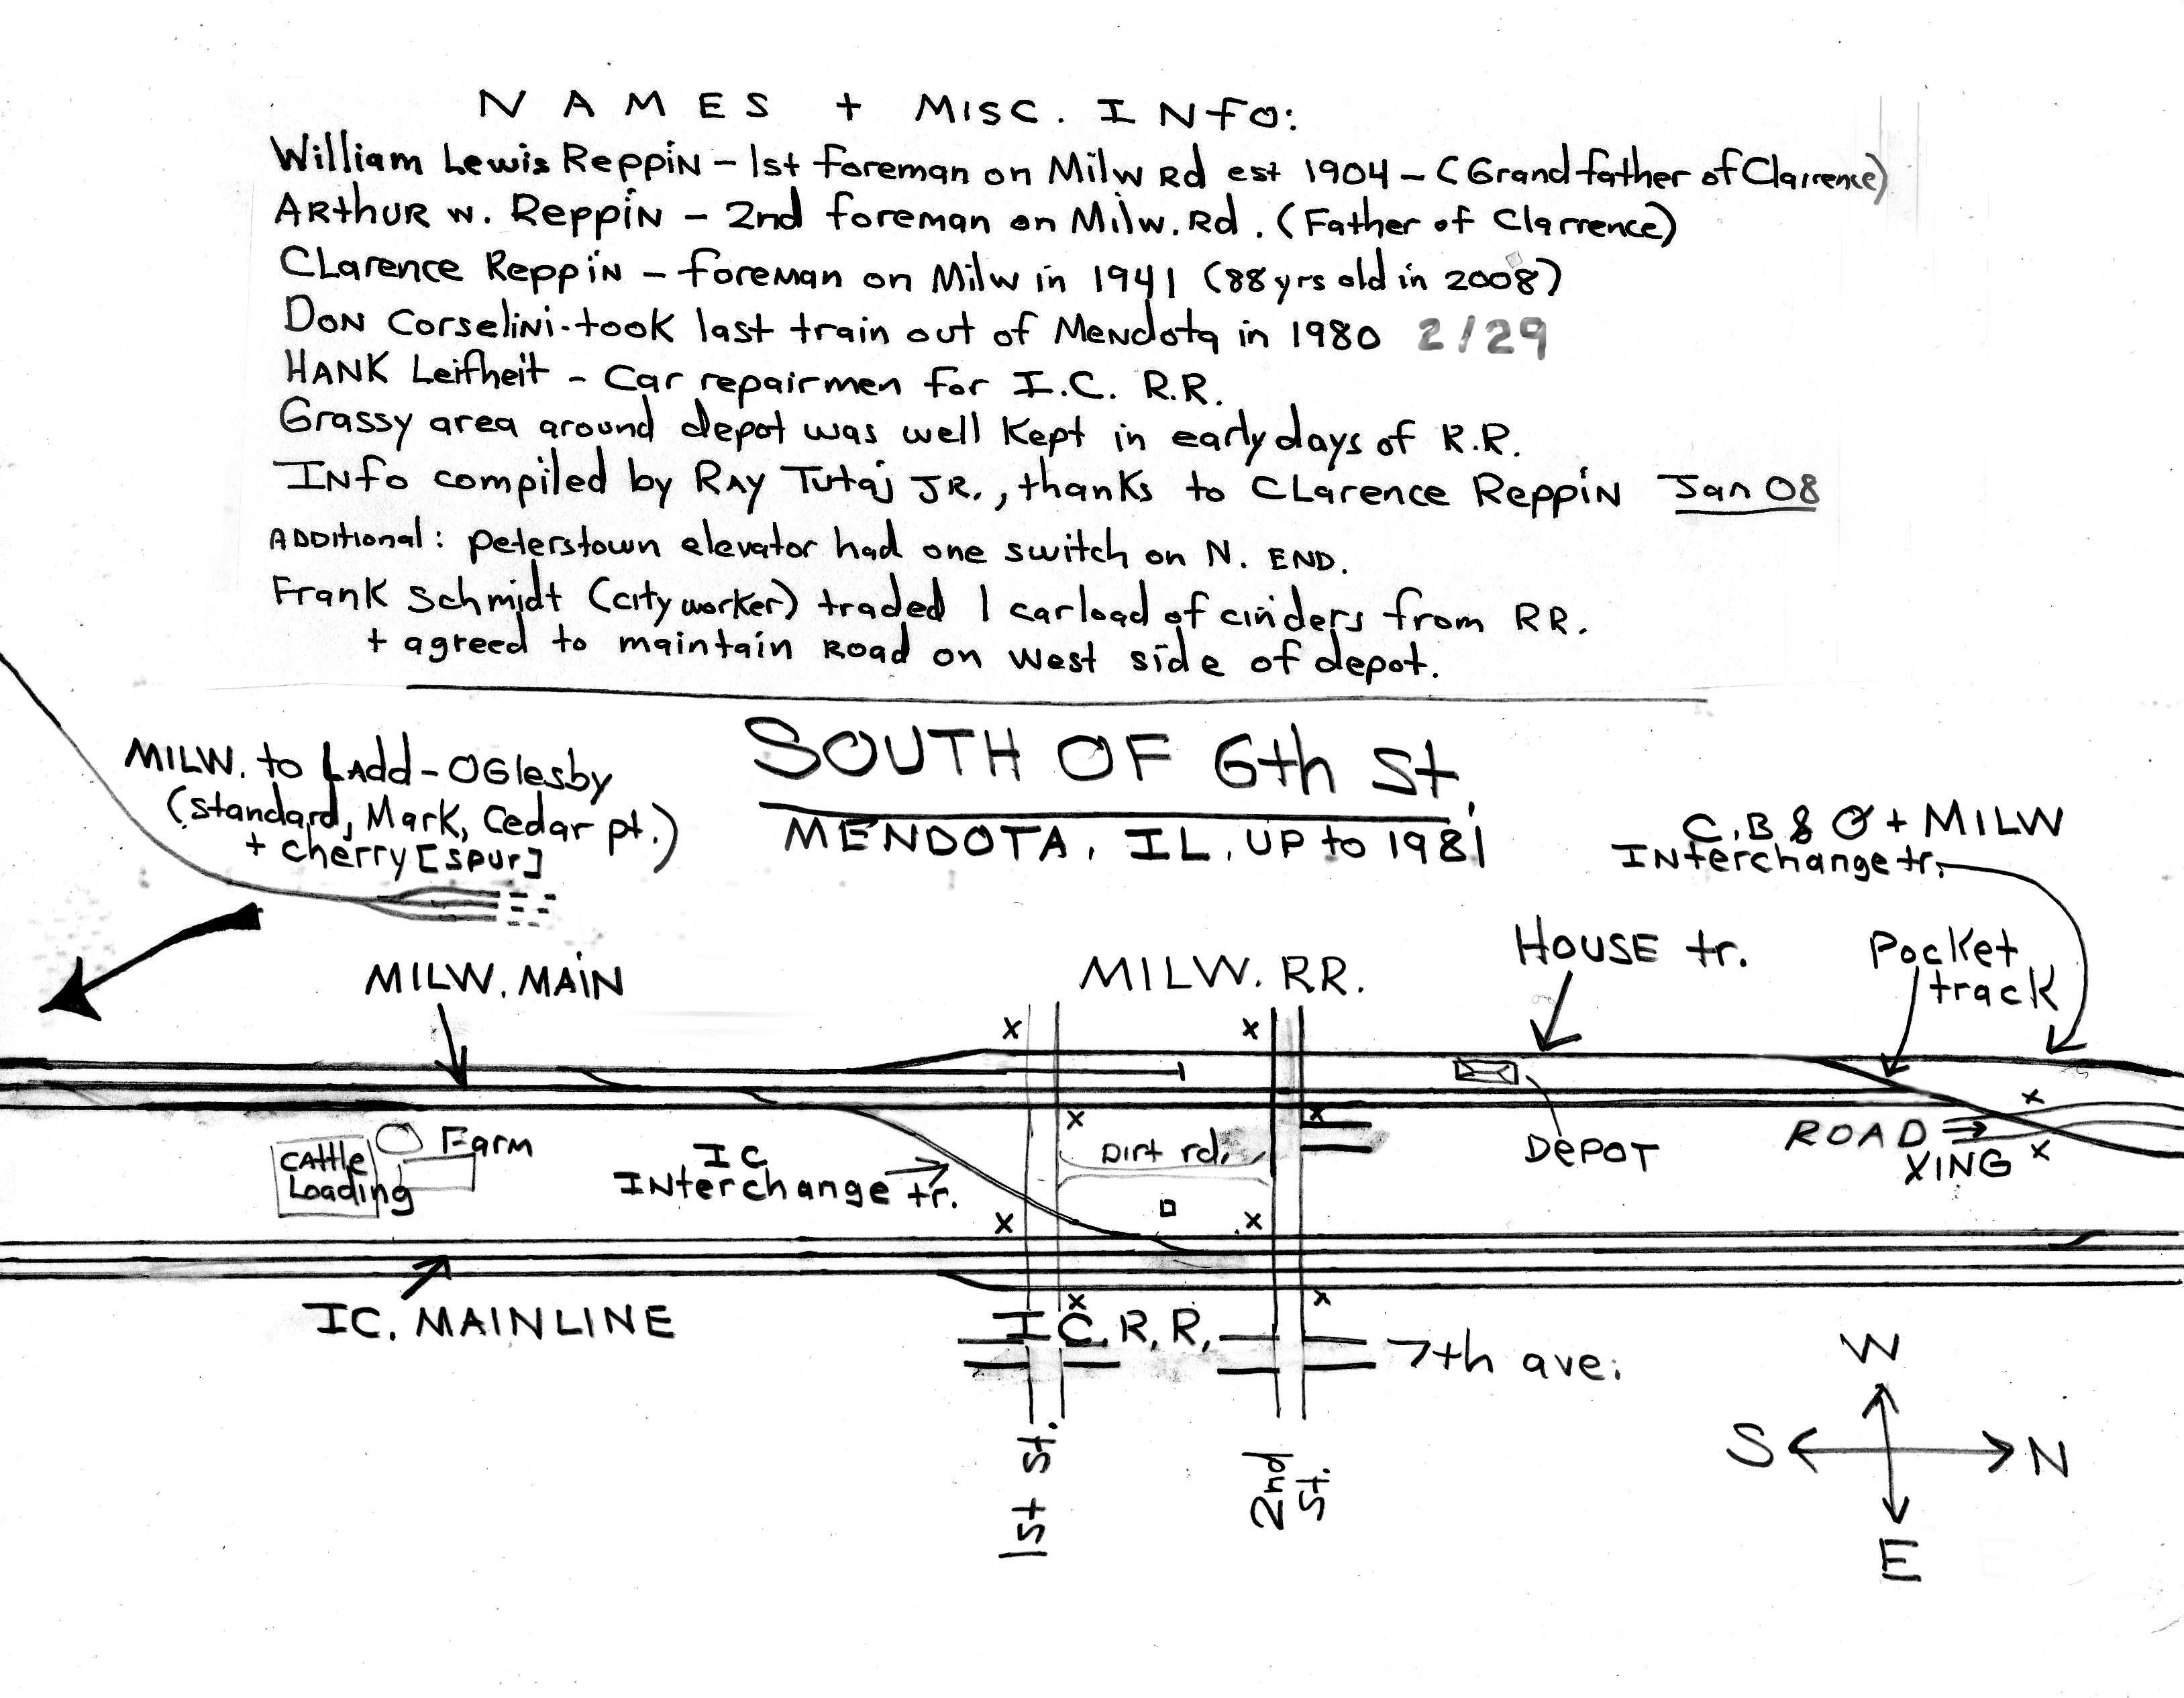 NAMES + MISC. INfo:
William Lewis Reppin - 1st foreman on Milw Rd est 1904 - (Grandfather of Clarrence)
Arthur W. Reppin - 2nd foreman on Milw. Rd. (Father of Clarrence)
Clarence Reppin - foreman on Milw in 1941 (88 yrs old in 2008)
Don Corselini - took last train out of Mendota in 1980 2/29
Hank Leifheit - Car repairmen for I.C. R.R.
Grassy area around depot was well kept in early days of R.R.
Info compiled by Ray Tutaj Jr., thanks to Clarence Reppin Jan 08
Additional: peterstown elevator had one switch on N. END.
Frank Schmidt (city worker) traded 1 carload of cinders from RR.
+ agreed to maintain Road on west side of depot.
SOUTH OF 6th St.
MENDOTA, IL, UP to 1981
MILW. to Ladd-Oglesby
(standard, Mark, Cedar pt.)
+ cherry [spur]
C.B & Q + MILW
Interchange tr.
HOUSE tr.
Pocket
track
MILW. MAIN
MILW. RR.
Cattle
Loading
Farm
IC
Interchange tr.
Dirt rd.
DEPOT
ROAD
XING
IC. MAINLINE
I C. R. R.
7th ave.
1st st.
2nd
St.
W
S
N
E